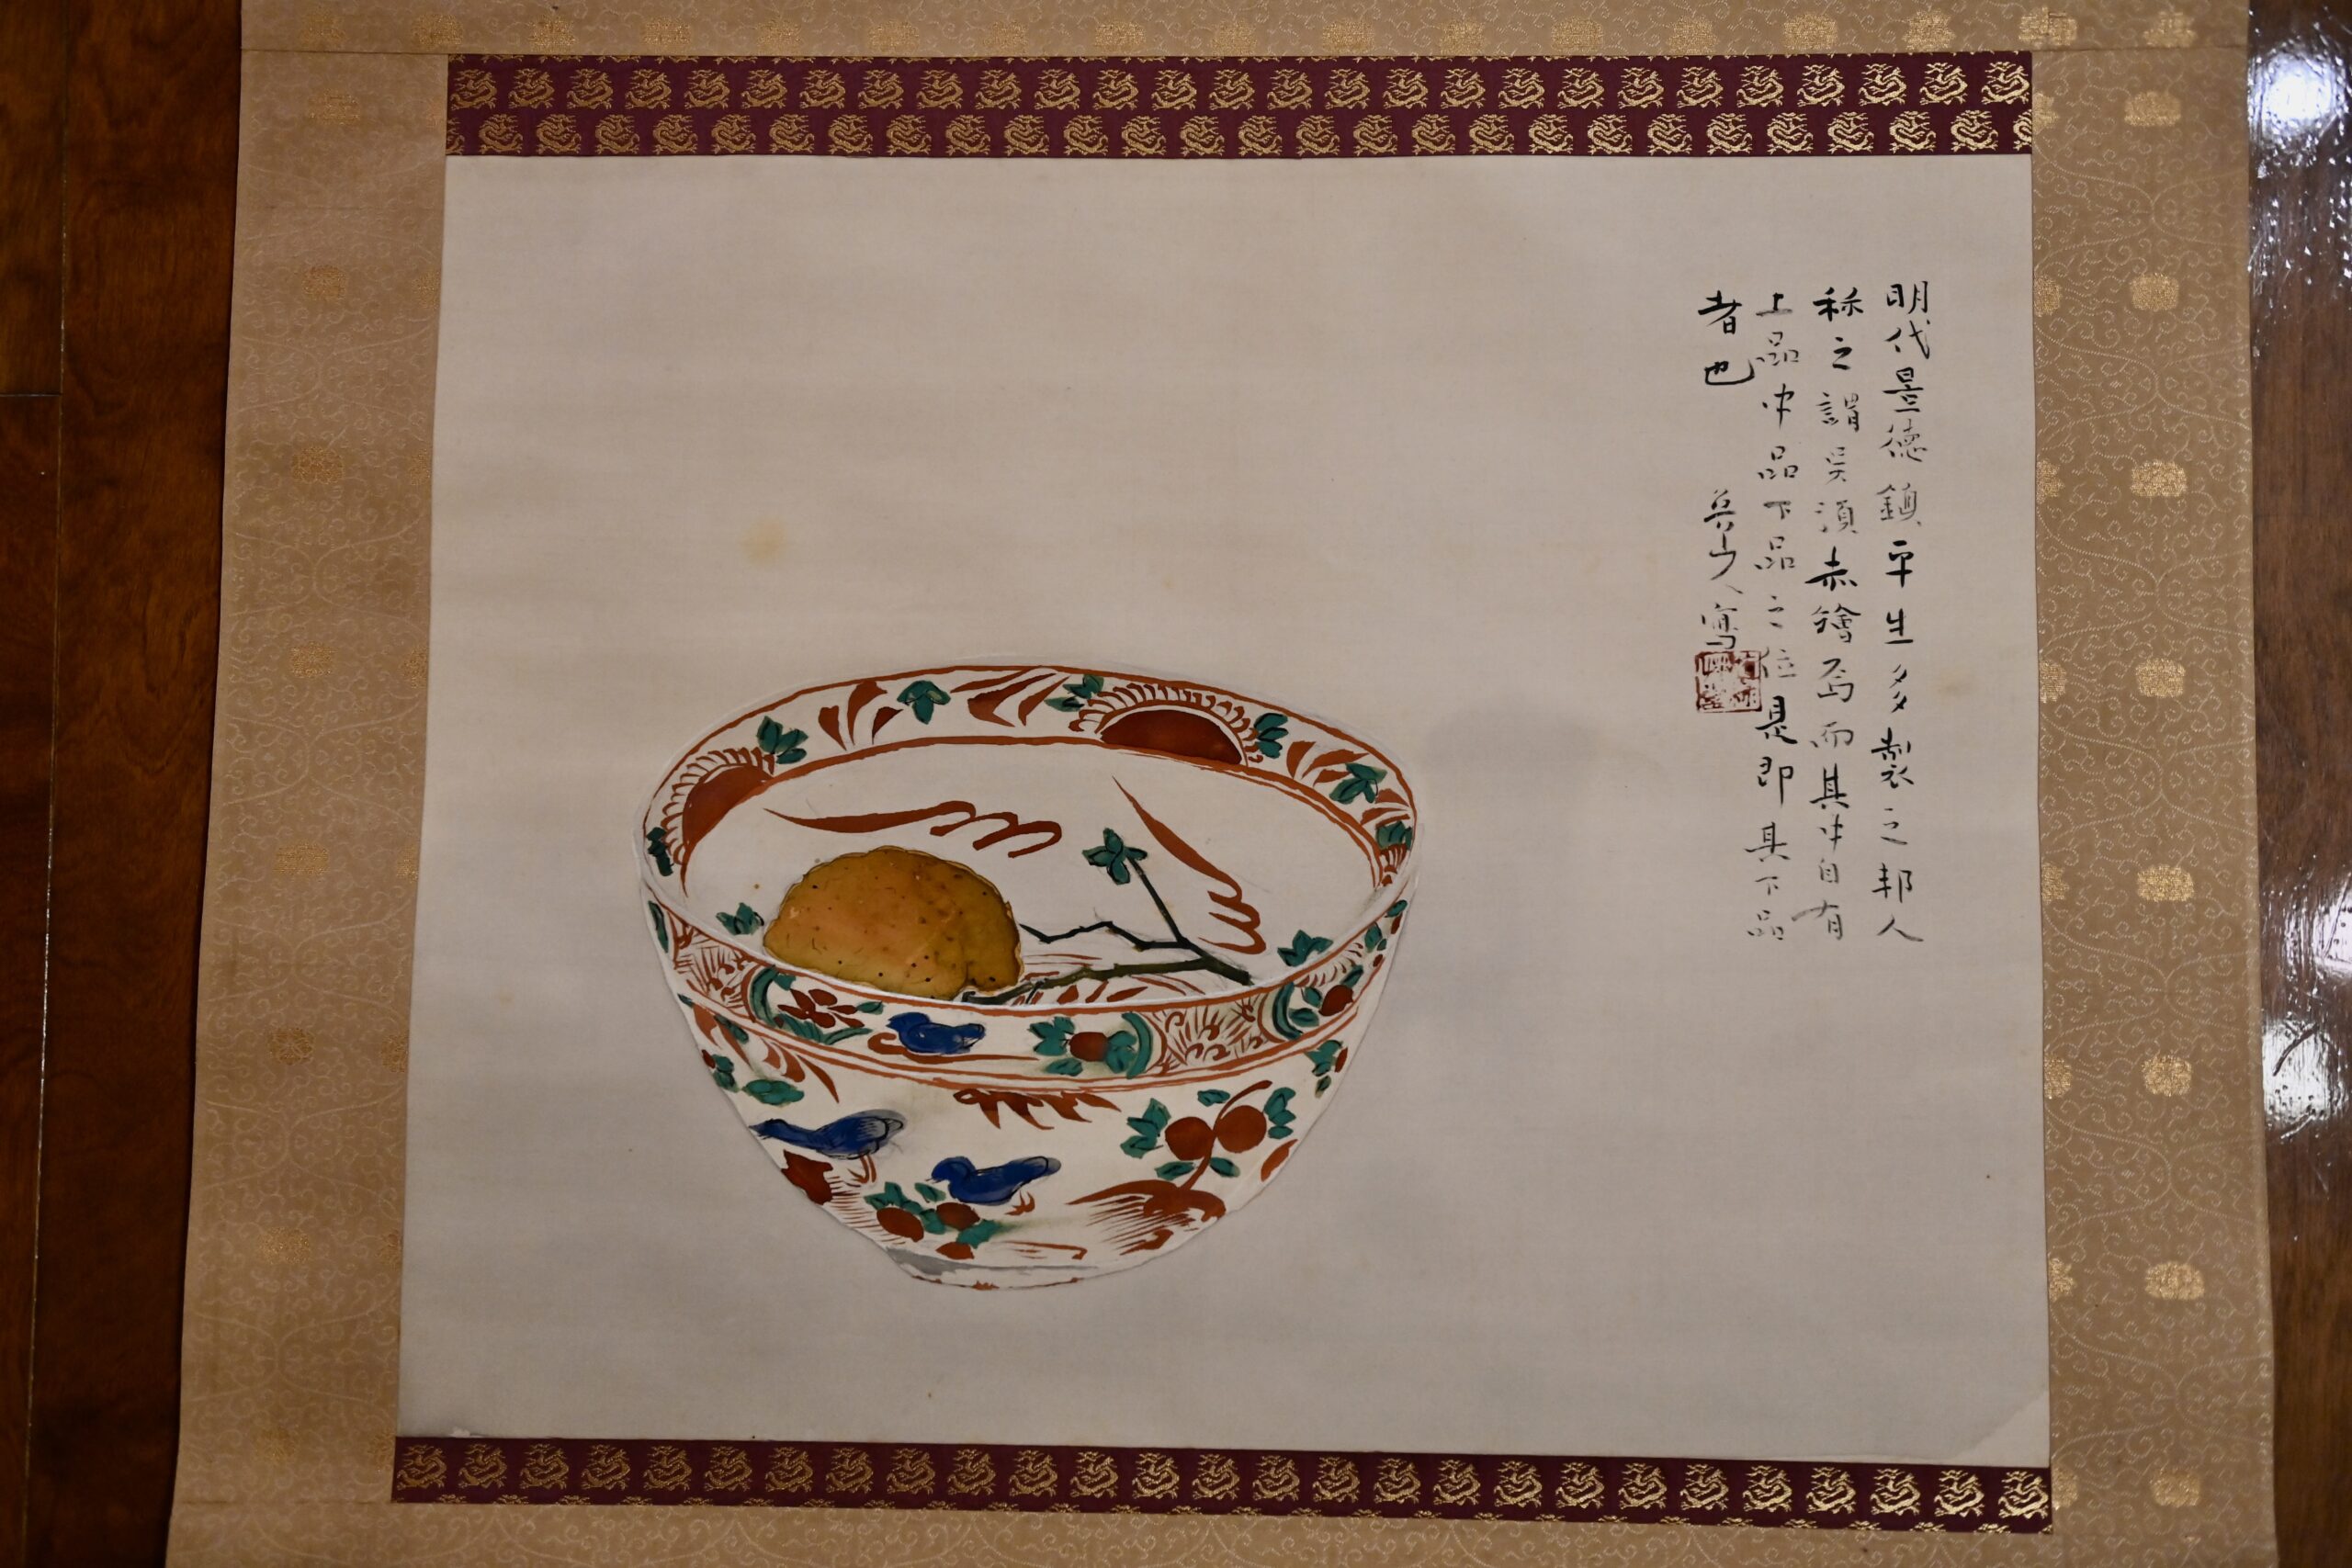 明代景德鎮平生多製之邦人
称之謂吴須赤繪焉而其中自有
上品中品下品之位是即其下品
者也
山人寫